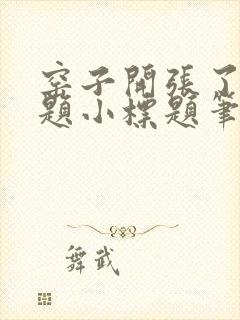 窑子開張了
題小標題筆
舞武